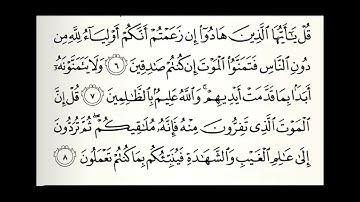 قُلْ يَٰٓأَيُّهَا ٱلَّذِينَ هَادُوٓا۟ إِن زَعَمْتُمْ أَنَّكُمْ أَوْلِيَآءُ لِلَّهِ مِن
دُونِ ٱلنَّاسِ فَتَمَنَّوُا۟ ٱلْمَوْتَ إِن كُنتُمْ صَٰدِقِينَ ٦ وَلَا يَتَمَنَّوْنَهُۥٓ
أَبَدًۢا بِمَا قَدَّمَتْ أَيْدِيهِمْ ۚ وَٱللَّهُ عَلِيمٌۢ بِٱلظَّٰلِمِينَ ٧ قُلْ إِنَّ
ٱلْمَوْتَ ٱلَّذِى تَفِرُّونَ مِنْهُ فَإِنَّهُۥ مُلَٰقِيكُمْ ۖ ثُمَّ تُرَدُّونَ
إِلَىٰ عَٰلِمِ ٱلْغَيْبِ وَٱلشَّهَٰدَةِ فَيُنَبِّئُكُم بِمَا كُنتُمْ تَعْمَلُونَ ٨